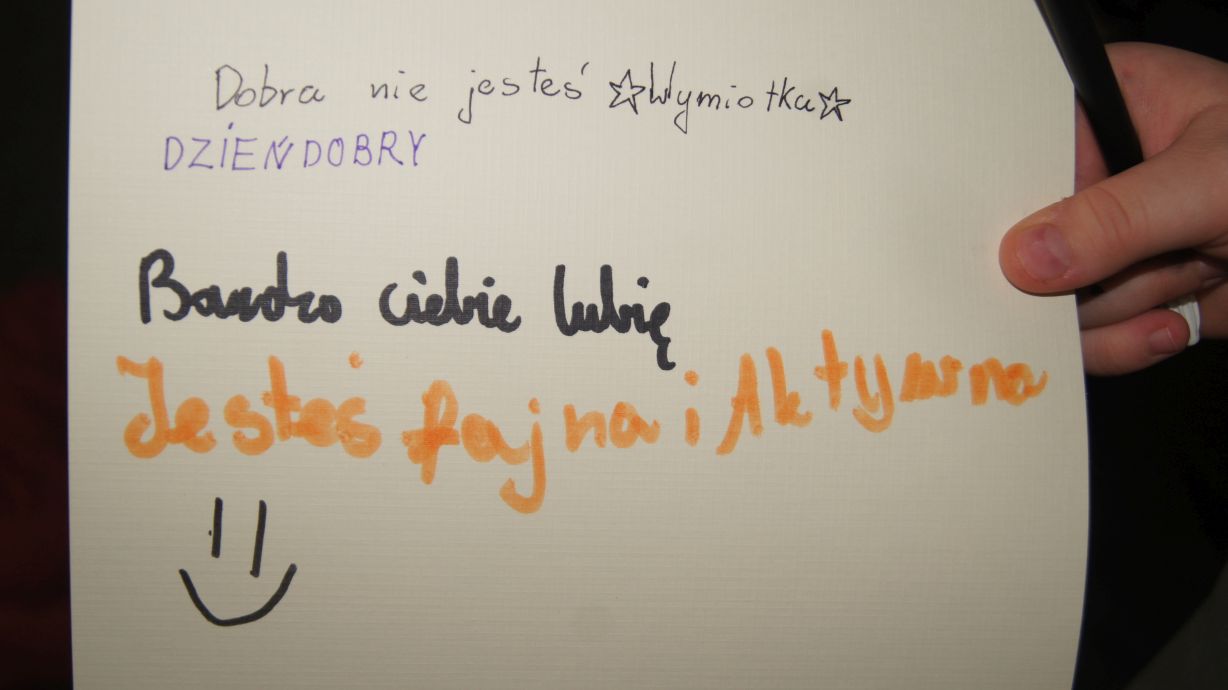 Dobra nie jesteś ☆Wymiotka☆
DZIEŃ DOBRY
Bardzo ciebie lubię
Jesteś fajna i Aktywna